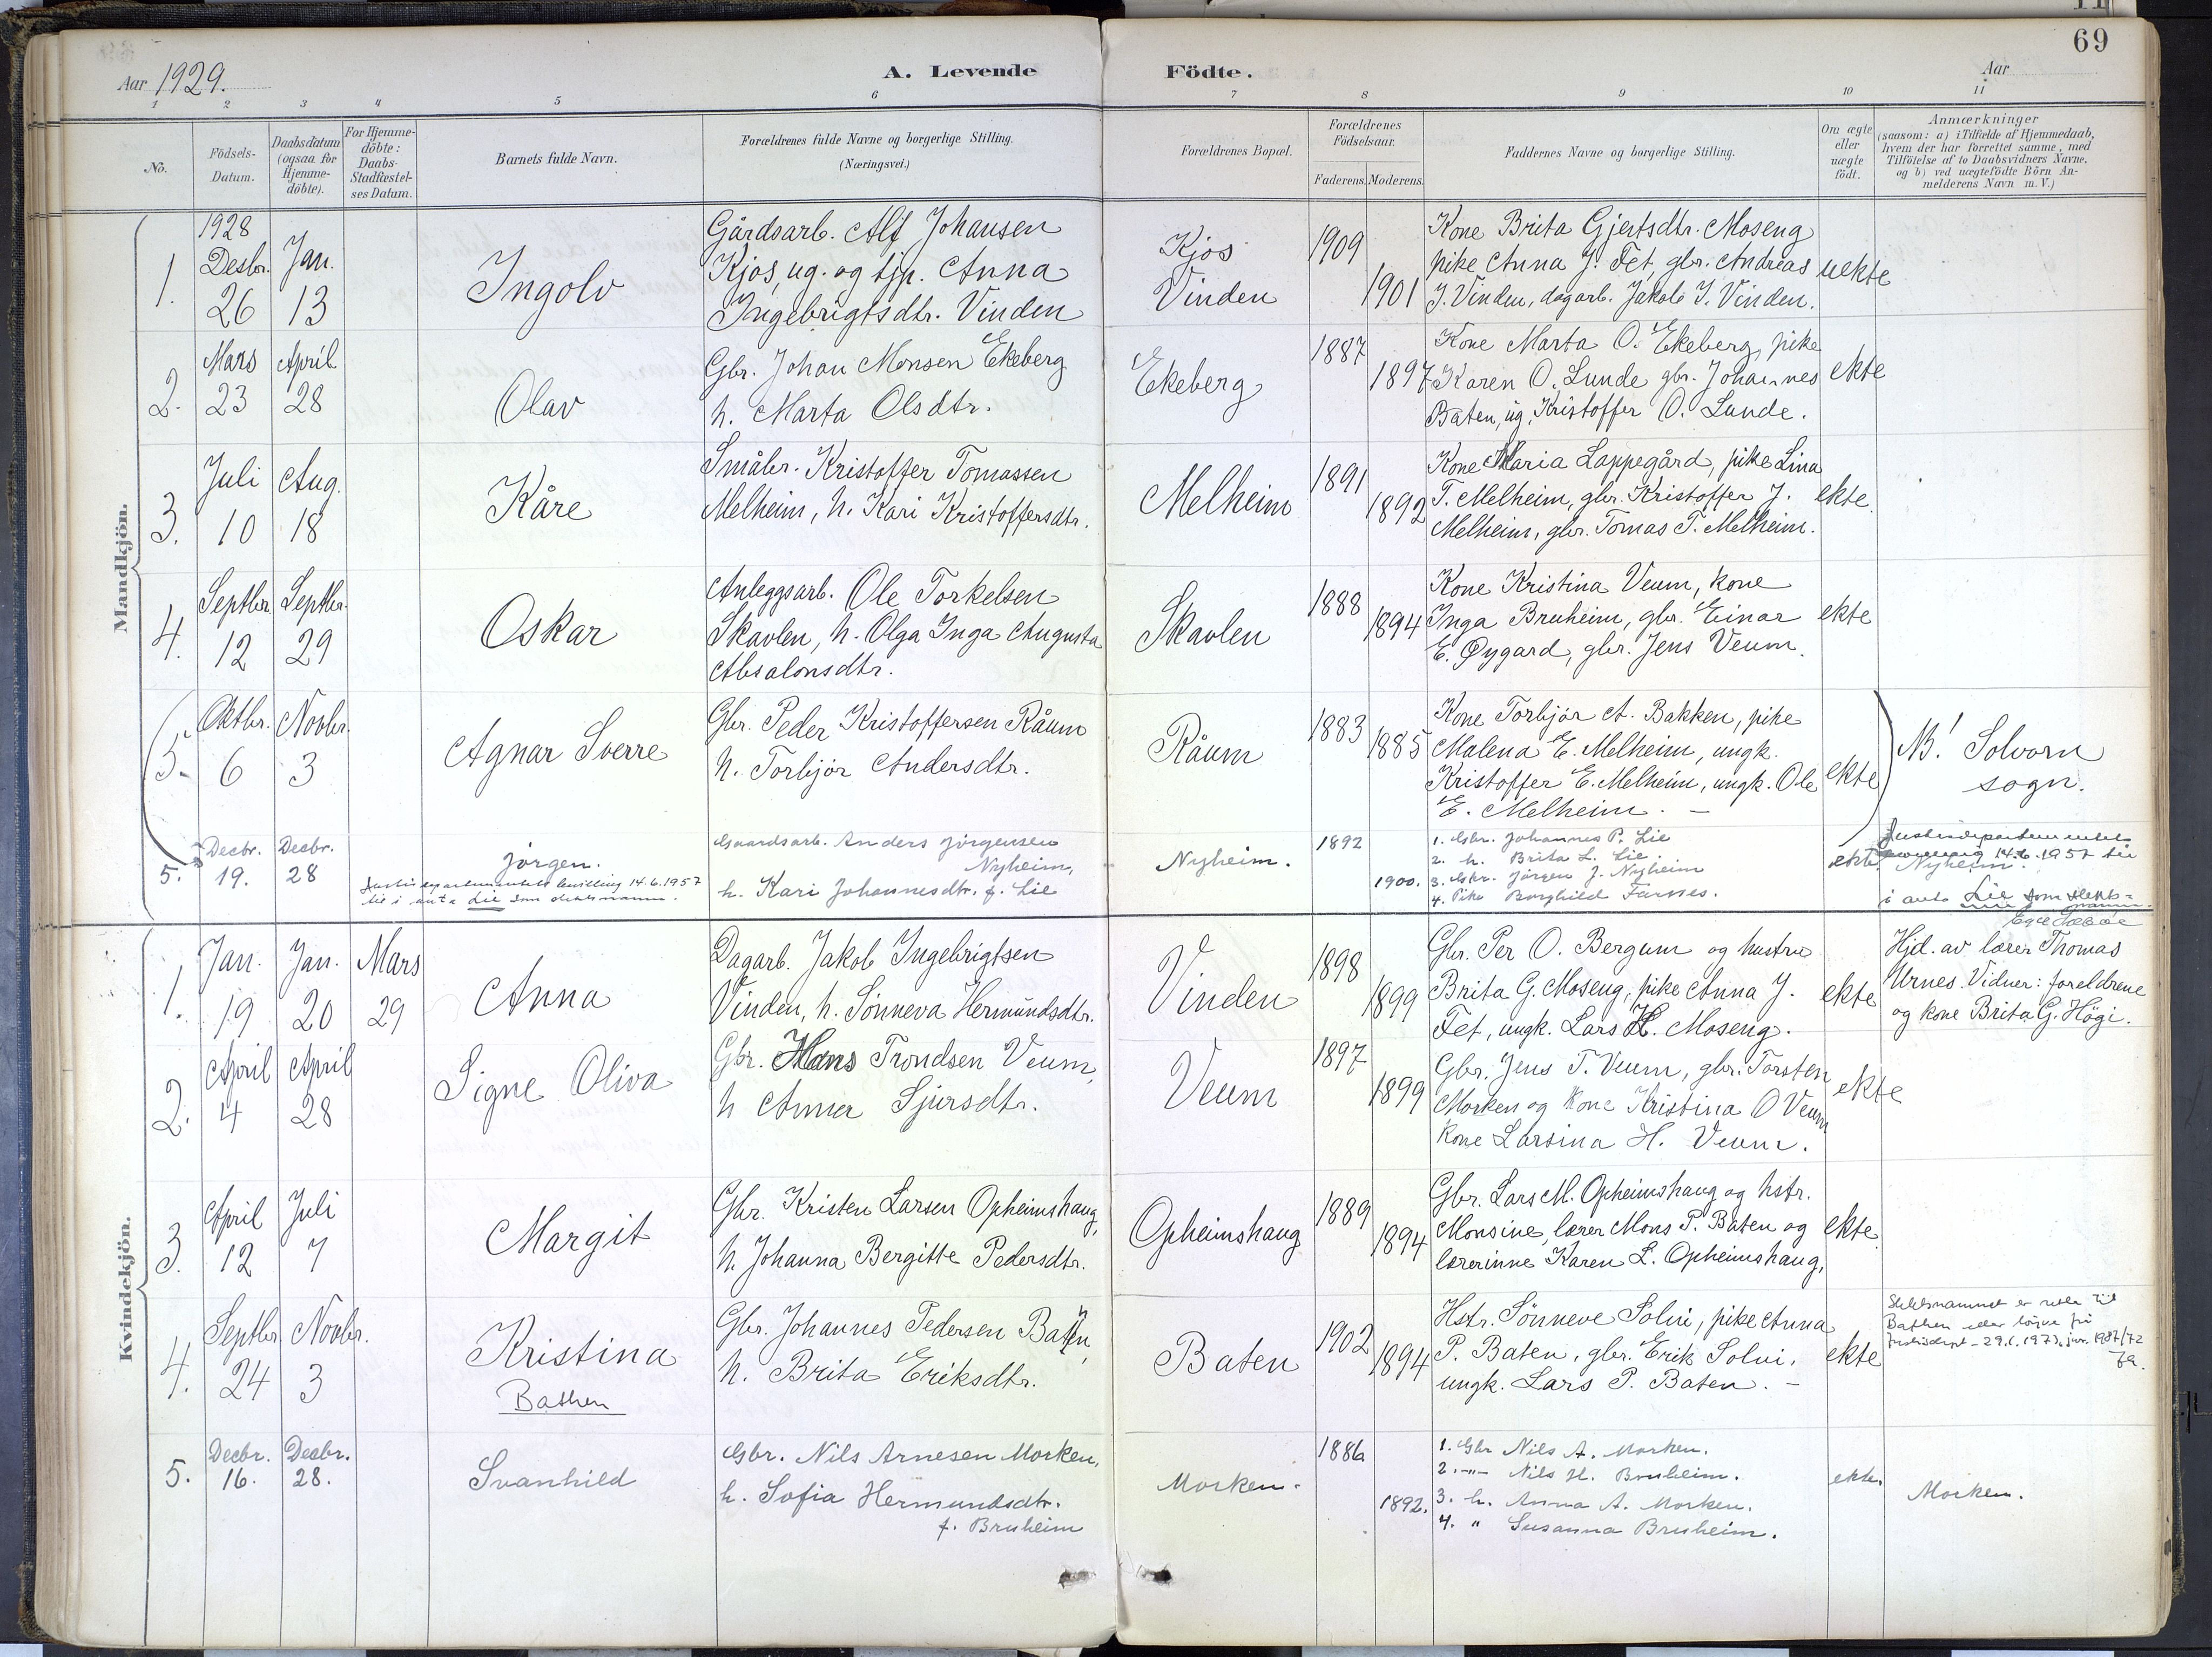 69
Aar 1929.
A. Levende Födte.
Aar
1 2 3 4 5 6 7 8 9 10 11
No.
Födsels-
Datum.
Daabsdatum
(ogsaa for
Hjemme-
döbte).
For Hjemme-
döbte:
Daabs-
Stadfæstel-
ses Datum.
Barnets fulde Navn.
Forældrenes fulde Navne og borgerlige Stilling.
(Næringsvei.)
Forældrenes Bopæl.
Forældrenes
Födselsaar.
Faderens. Moderens.
Faddernes Navne og borgerlige Stilling.
Om ægte
eller
uægte
födt.
Anmærkninger
(saasom: a) i Tilfælde af Hjemmedaab,
hvem der har forrettet samme, med
Tilföielse af to Daabsvidners Navne,
og b) ved uægtefödte Börn An-
melderens Navn m. V.)
Mandkjön.
1.
1928
Desbr.
26
Jan.
13
Ingolv
Gårdsarb. Alf Johansen
Kjos, ug. og tjp. Anna
Ingebrigtsdtr. Vinden
Kjos
Vinden
1909
1901
Kone Brita Gjertsdtr. Moseng
pike Anna J. Fet, gbr. Andreas
J. Vinden, dagarb. Jakob J. Vinden.
uekte
2.
Mars
23
April
28
Olav
Gbr. Johan Monsen Ekeberg
h. Marta Olsdtr.
Ekeberg
1887
1897
Kone Marta O. Ekeberg, pike
Karen O. Lunde gbr. Johannes
Baten, ug. Kristoffer O. Lunde.
ekte
3.
Juli
10
Aug.
18
Kåre
Småbr. Kristoffer Tomassen
Melheim, h. Kari Kristoffersdtr.
Melheim
1891
1892
Kone Maria Lappegård, pike Lina
T. Melheim, gbr. Kristoffer J.
Melheim, gbr. Tomas T. Melheim.
ekte.
4.
Septbr.
12
Septbr.
29
Oskar
Anleggsarb. Ole Torkelsen
Skavlen, h. Olga Inga Augusta
Absalonsdtr.
Skavlen
1888
1894
Kone Kristina Veum, kone
Inga Bruheim, gbr. Einar
E. Øygard, gbr. Jens Veum.
ekte
5.
Oktbr.
6
Novbr.
3
Agnar Sverre
Gbr. Peder Kristoffersen Råum
h. Torbjör Andersdtr.
Råum
1883
1885
Kone Torbjör A. Bakken, pike
Malena E. Melheim, ungk.
Kristoffer E. Melheim, ungk. Ole
E. Melheim. –
ekte
NB! Solvorn
sogn.
5.
Decbr.
19.
Desbr.
28
Jörgen.
Justisdepartementets bevilling 14.6.1957
til i anta Lie som slektsnamn.
Gaardsarb. Anders Jörgensen
Nyheim,
h. Kari Johannesdtr. f. Lie
Nyheim.
1892
1900.
1. Gbr. Johannes P. Lie
2. h. Brita L. Lie
3. Gbr. Jörgen J. Nyheim
4. Pike Borghild Farnes.
ekte.
Justisdepartementets
14.6.1957 til
Nyheim.
i anta Lie som slekts-
namn.
Kvindekjön.
1.
Jan.
19
Jan.
20
Mars
29
Anna
Dagarb. Jakob Ingebrigtsen
Vinden, h. Sønneva Hermundsdtr.
Vinden
1898
1899
Gbr. Per O. Bergum og hustru
Brita G. Moseng, pike Anna J.
Fet, ungk. Lars H. Moseng.
ekte
Hjd. av lærer Thomas
Urnes. Vidner: foreldrene
og kone Brita G. Högi.
2.
April
4
April
28
Signe Oliva
Gbr. Hans Trondsen Veum,
h Anna Sjursdtr.
Veum
1897
1899
Gbr. Jens T. Veum, gbr. Torsten
Morken og kone Kristina O Veum
kone Larsina H. Veum.
ekte
3.
April
12
Juli
7
Margit
Gbr. Kristen Larsen Opheimshaug,
h. Johanna Bergitte Pedersdtr.
Opheimshaug
1889
1894
Gbr. Lars M. Opheimshaug og hstr.
Monsine, lærer Mons P. Baten og
lærerinne Karen L. Opheimshaug.
ekte.
4.
Septbr.
24
Novbr.
3
Kristina
Bathen
Gbr. Johannes Pedersen Baten,
h. Brita Eriksdtr.
Baten
1902
1894
Hstr. Sönneve Solvi, pike Anna
P. Baten, gbr. Erik Solvi,
ungk. Lars P. Baten. –
ekte
Slektsnamnet er retta til
Bathen
5.
Decbr.
16.
Desbr.
28.
Svanhild
Gbr. Nils Arnesen Morken,
h. Sofia Hermundsdtr.
f. Bruheim
Morken.
1886
1892.
1. Gbr Nils A. Morken.
2. –"– Nils H. Bruheim.
3. h. Anna A. Morken.
4. " Susanna Bruheim.
ekte.
Morken.